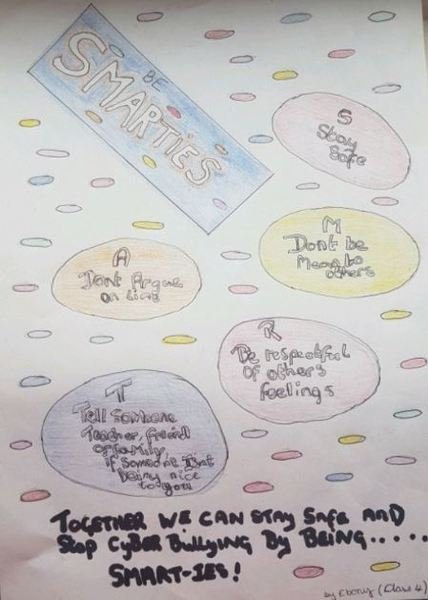 BE
SMARTIES
S
Stay
Safe
M
Dont be
Mean to
others
A
Dont Argue
on line
R
Be respectful
of others
feelings
T
Tell someone
Teacher, friend
or family
if someone Isnt
being nice
to you
TOGETHER WE CAN STAY SAFE AND
Stop Cyber Bullying By BEING.....
SMART-IES!
by Ebony (Class 4)